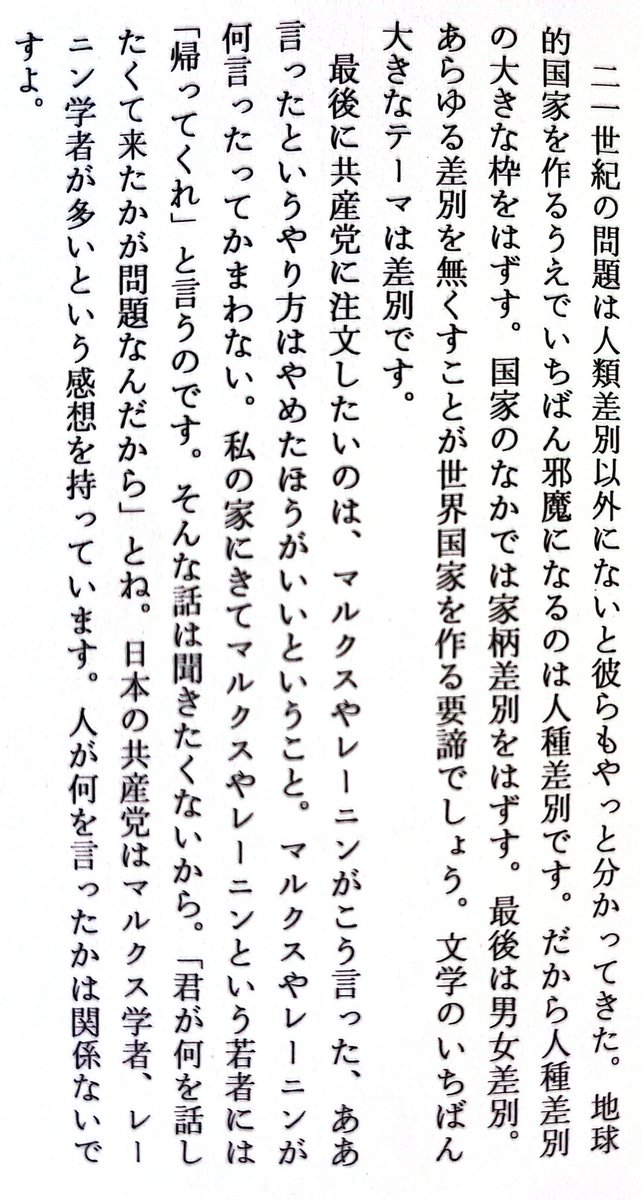 二一世紀の問題は人類差別以外にないと彼らもやっと分かってきた。地球
的国家を作るうえでいちばん邪魔になるのは人種差別です。だから人種差別
の大きな枠をはずす。国家のなかでは家柄差別をはずす。最後は男女差別。
あらゆる差別を無くすことが世界国家を作る要諦でしょう。文学のいちばん
大きなテーマは差別です。
最後に共産党に注文したいのは、マルクスやレーニンがこう言った、ああ
言ったというやり方はやめたほうがいいということ。マルクスやレーニンが
何言ったってかまわない。私の家にきてマルクスやレーニンという若者には
「帰ってくれ」と言うのです。そんな話は聞きたくないから。「君が何を話し
たくて来たかが問題なんだから」とね。日本の共産党はマルクス学者、レー
ニン学者が多いという感想を持っています。人が何を言ったかは関係ないで
すよ。